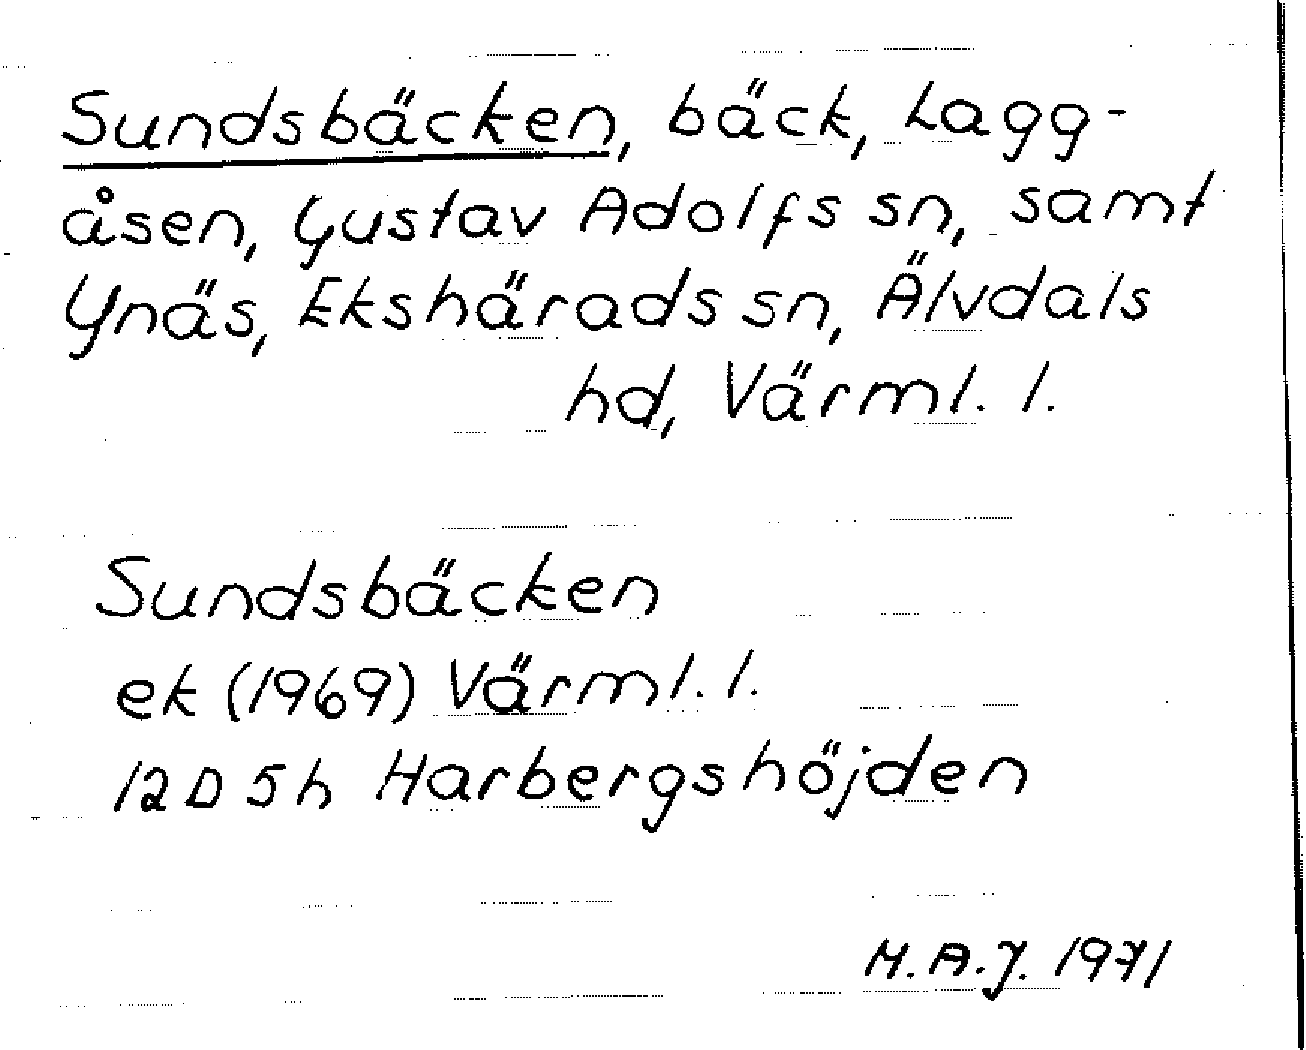 Sundsbäcken, bäck, Lagg-
åsen, Gustav Adolfs sn, samt
Ynäs, Ekshärads sn, Älvdals
hd, Värml. l.
Sundsbäcken
ek (1969) Värml. l.
12D 5h Harbergshöjden
M.A.J. 1971